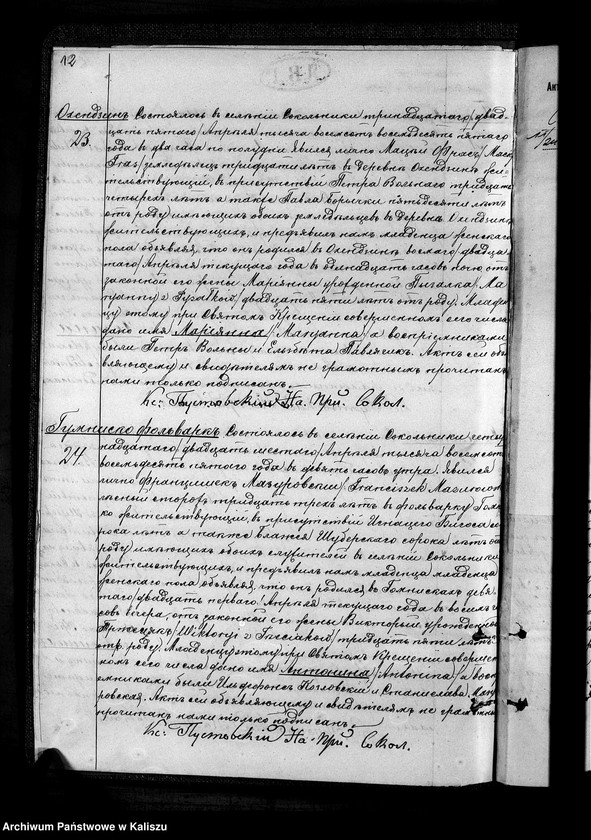 12
Охендзинъ Состоялось въ селеніи Сокольники тринадцатаго /двад-
23. цать пятаго/ Апрѣля тысяча восемсотъ восемьдесятъ пятаго
года въ два часа по полудни явился лично Мацѣй Фрасъ /Maciej
Fras/ земледѣлецъ тридцати лѣтъ въ деревнѣ Охендзинъ жи-
тельствующій, въ присутствіи Петра Вольнаго тридцати
четырехъ лѣтъ а также Павла пятидесяти лѣтъ
отъ роду имѣющихъ обоихъ земледѣльцевъ въ деревнѣ Охендзинъ
жительствующихъ, и предъявилъ намъ младенца женскаго
пола объявляя, что онъ родился въ Охендзинъ восьмаго /двадца-
таго/ Апрѣля текущаго года въ одиннадцать часовъ ночи, отъ
законной его жены Маріянны урожденной /Ma-
ryanny z двадцать пяти лѣтъ отъ роду. Младен-
цу этому при Святомъ Крещеніи совершенномъ сего числа
дано имя Маріянна /Maryanna/ а воспріемниками
были Петръ Вольны и Елзбѣта Павлячикъ. Актъ сей объ-
являющему и свидѣтелямъ не грамотнымъ прочитанъ
нами только подписанъ.
Кс: Пустовскій На. При. Сокол.
Гумниско фольваркъ Состоялось въ селеніи Сокольники четыр-
24. надцатаго /двадцать шестаго/ Апрѣля тысяча восемсотъ
восемьдесятъ пятаго года въ девять часовъ утра. Явился
лично Францишекъ Мазуровскій /Franciszek
сторожъ тридцать трехъ лѣтъ въ фольварку Гумнис-
ко жительствующій, въ присутствіи Игнацего со-
рока лѣтъ а также Блажея Шуберскаго сорока лѣтъ отъ
роду имѣющихъ обоихъ служителей въ селеніи Сокольники
жительствующихъ, и предъявилъ намъ младенца младенца
женскаго пола объявляя, что онъ родился въ Гомнискахъ девя-
таго /двадцать перваго/ Апрѣля текущаго года въ восемь ча-
совъ вечера, отъ законной его жены Викторыи урожденной
/Wiktoryi z тридцать пяти лѣтъ
отъ роду. Младенцу этому при Святомъ Крещеніи совершен-
номъ сего числа дано имя Антонина /Antonina/ а воспрі-
емниками были Ильдефонсъ Козловскій и Станислава Мазу-
ровская. Актъ сей объявляющему и свидѣтелямъ не грамотнымъ
прочитанъ нами только подписанъ.
Кс: Пустовскій На. При. Сокол.
Archiwum Państwowe w Kaliszu